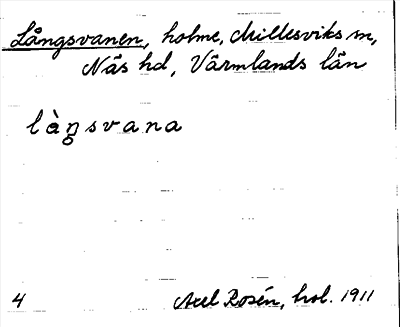 Långsvanen, holme, Millesviks sn,
Näs hd, Värmlands län
làŋsvana
4 Axel Rosén, hol. 1911